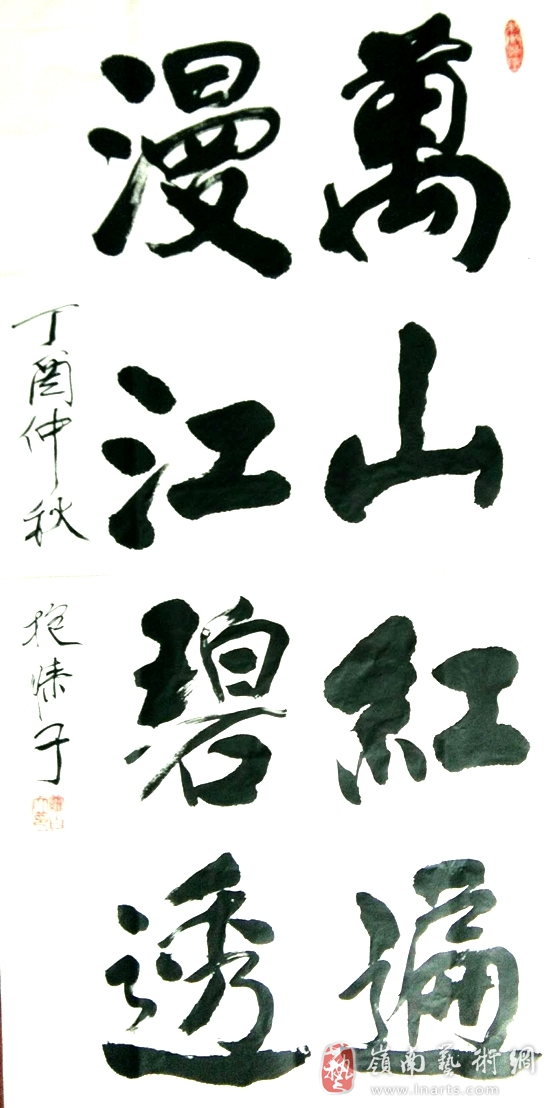 萬山紅遍
漫江碧透
丁酉仲秋
子
嶺南藝術網
www.lnarts.com